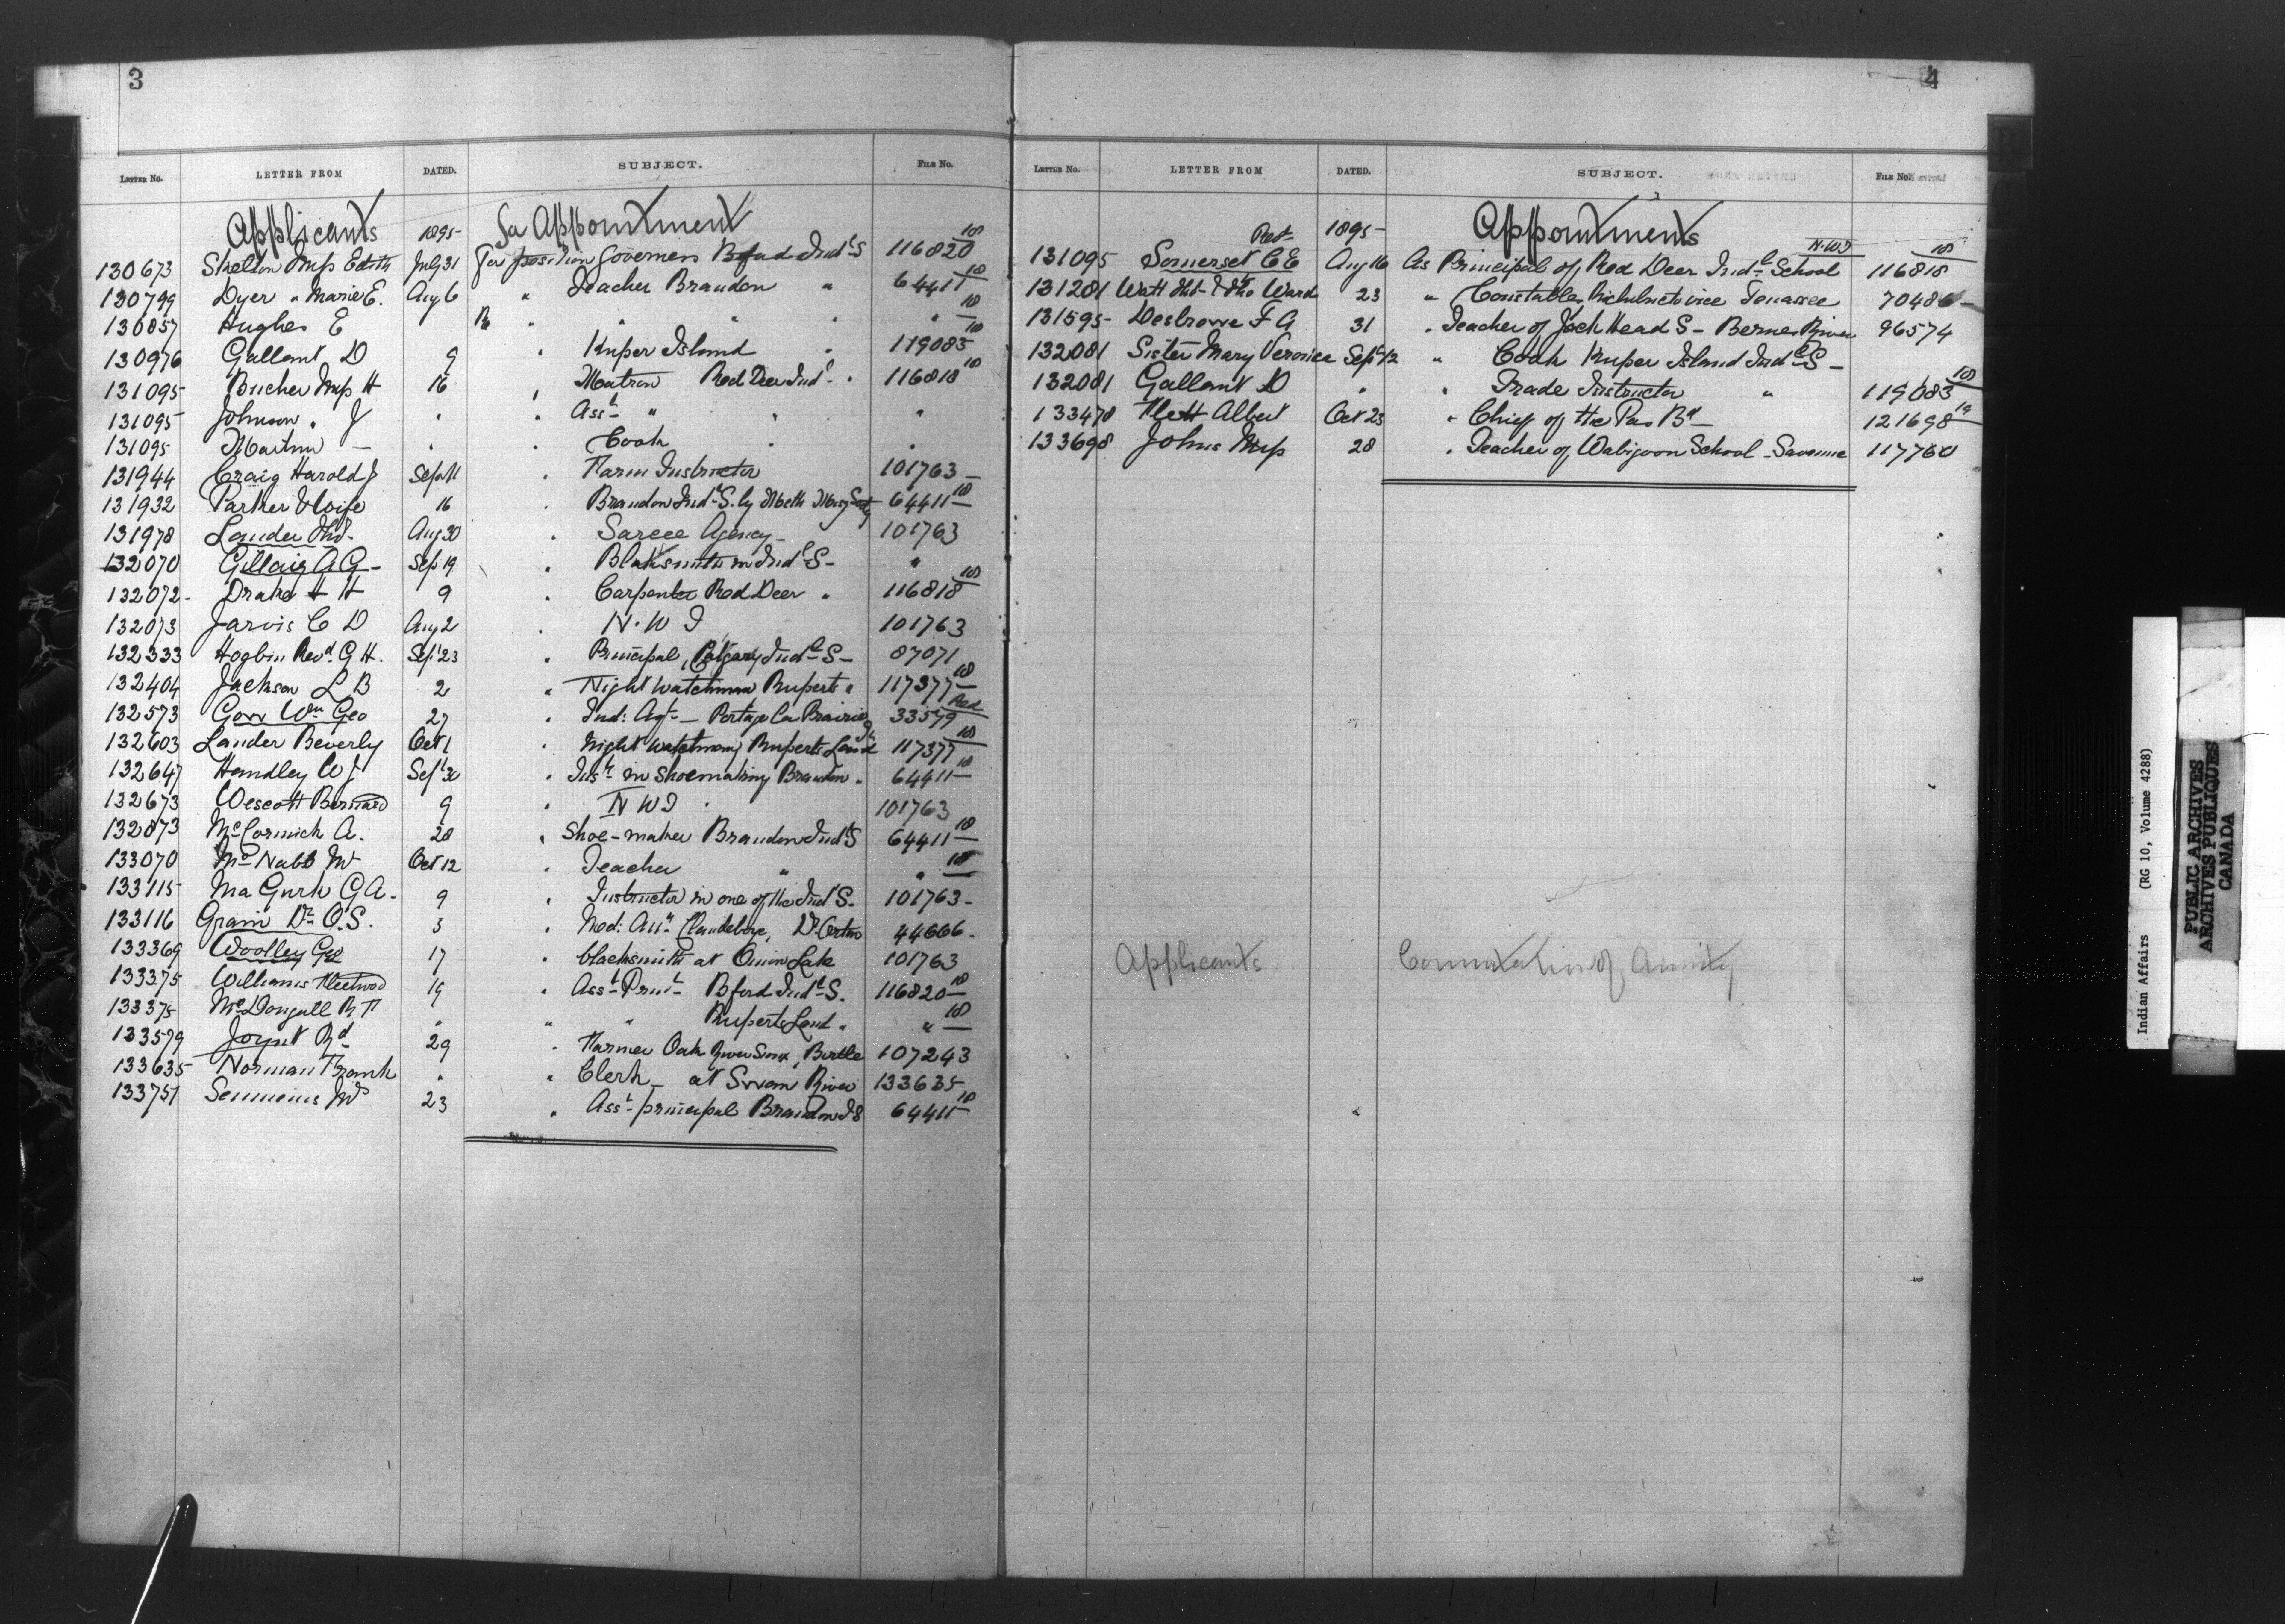 3
LETTER NO. LETTER FROM DATED. SUBJECT. FILE NO.
Applicants 1895 For Appointment
130673 Skelton Miss Edith July 31 For position Governess Bford Indl S 116820 10
130799 Dyer " Marie E. Aug 6 " Teacher Brandon " 64411 10
130857 Hughes E " " " " 10
130976 Gallant D 9 " Kuper Island " 119085 10
131095 Bucher Miss H 16 " Matron Red Deer Indl " 116818 10
131095 Johnson " J " " Asst " " "
131095 Martin — " " Cook " "
131944 Craig Harold J Sept 11 " Farm Instructor 101763
131932 Parker & Wife 16 " Brandon Indl S. by Meth Missy Socty 64411 10
131978 Lauder Aug 30 " Sarcee Agency 101763
132070 A G Sep 19 " Blacksmith in Indl S "
132072 Drake H H 9 " Carpenter Red Deer " 116818 10
132073 Jarvis C D Aug 2 " N.W T 101763
132333 Hogbin Revd. G H. Sept 23 " Principal, Calgary Indl S 87071
132404 Jackson L B 2 " Night watchman Ruperts " 117377 10
132573 Wm Geo 27 " Ind: Agt — Portage La Prairie 33579 Red
132603 Lauder Beverly Oct 1 " Night watchman, Ruperts Land 117377 10
132647 Handley W J Sept 30 " Instr in Shoemaking Brandon " 64411 10
132673 Wescott Bernard 9 " N W T 101763
132873 McCormick A. 28 " Shoe-maker Brandon Indl S 64411 10
133070 McNabb Oct 12 " Teacher " " 10
133115 Ma Gurk G A. 9 " Instructor in one of the Indl S. 101763
133116 Grain Dr O.S. 3 " Med: Clandeboye, Dr Orton 44666
133369 Woolley Geo 17 " blacksmith at Onion Lake 101763
133375 Williams Fleetwood 19 " Asst Prinl Bford Indl S. 116820 10
133375 McDougall R " " " Ruperts Land " " 10
133579 Joynt Rd 29 " Farmer Oak River Sioux, Birtle 107243
133635 Norman Frank " " Clerk — at Swan River 133635
133751 Semmens 23 " Asst principal Brandon I S 64411 10
4
LETTER NO. LETTER FROM DATED. SUBJECT. FILE NO.
1895 Appointments
131095 Somerset C E Aug 16 As Principal of Red Deer Indl School N.W.T 116818 10
131281 Watt & Ward 23 " Constable, Richibucto vice Tenassee 70486
131595 Desbrowe F G 31 " Teacher of Jack Head S — Berens River 96574
132081 Sister Mary Veronica Sept 12 " Cook Kuper Island Indl S
132081 Gallant D " " Trade Instructor " 119083 10
133478 Albert Oct 23 " Chief of the Pas Bd 121698 19
133698 Johns Miss 28 " Teacher of Wabigoon School - Savanne 117760
Applicants Commutation of Annuity
Indian Affairs (RG 10, Volume 4288)
PUBLIC ARCHIVES
ARCHIVES PUBLIQUES
CANADA